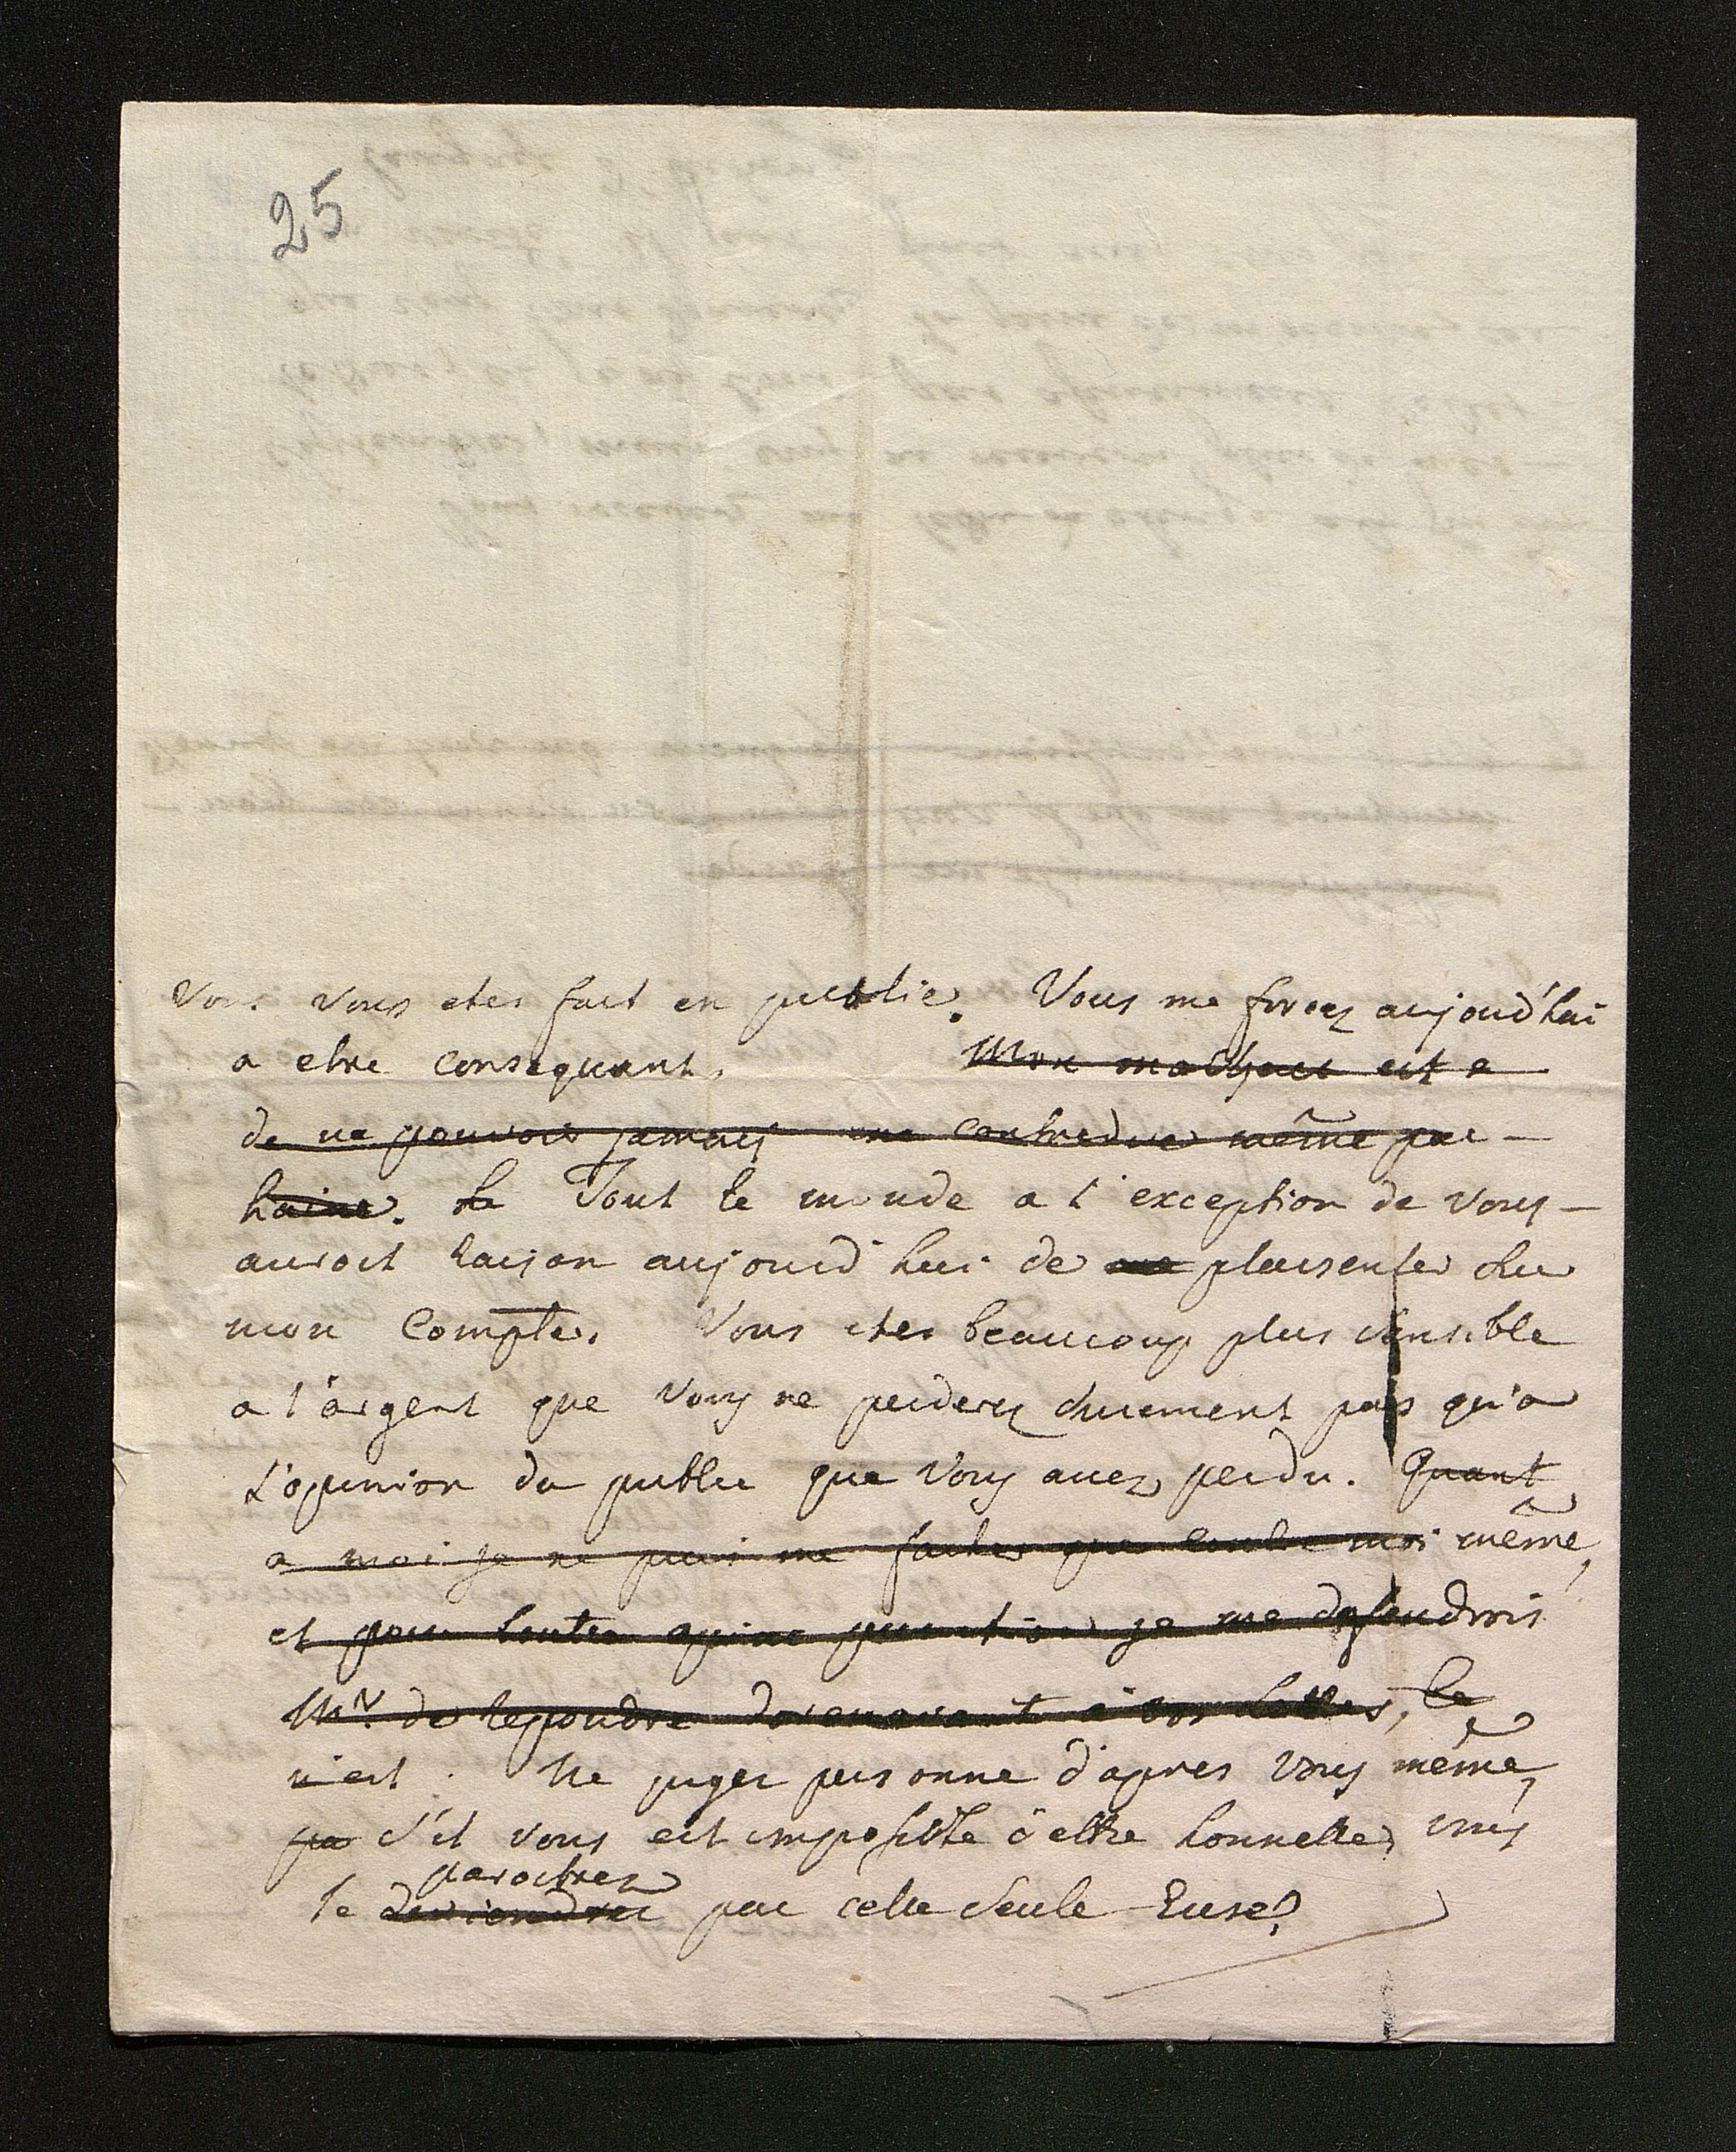 25
vous vous etes fait en public. Vous me forcez aujourd'hui
a etre consequant. Mon malheur est a
de ne pouvoir jamais me contredire même par
haine. Le Tout le monde a l'exception de vous
auroit raison aujourd'hui de me plaisenter sur
mon Compte. Vous etes beaucoup plus sensible
a l'argent que vous ne perderez surement pas qu'a
L'opinion du public que vous avez perdu. Quant
a moi je ne puis me facher que contre moi même,
et pour toute punition je me defendrois
Mr. de repondre dorenavant à vos lettres, ce
n'est. Ne juger personne d'apres vous même,
s'il vous est impossible d'ettre honnette, vous
paroitrez
le deviendrez par cette seule Ruse.